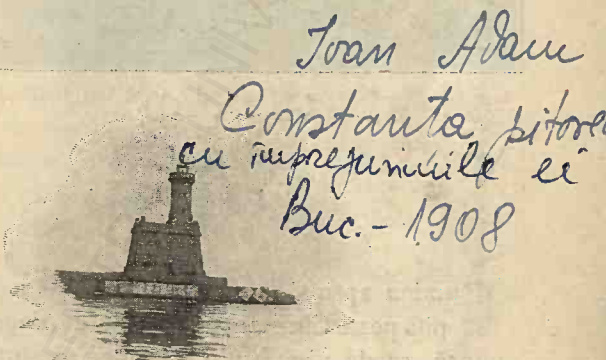 Ioan Adam
Constanta pitorea
cu împrejumuiile ei
Buc. - 1908